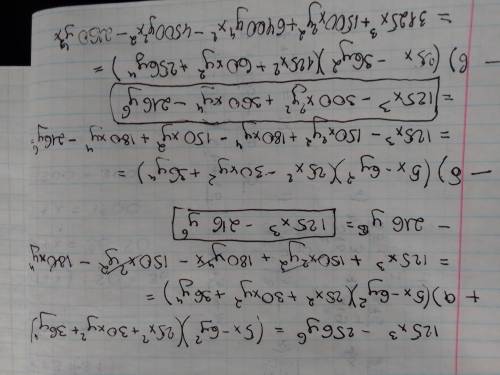 125x³ - 256y⁶ = (5x - 6y²)(25x² + 30xy² + 36y⁴)
+ а) (5x - 6y²)(25x² + 30xy² + 36y⁴) =
= 125x³ + 150x²y² + 180y⁴x - 150x²y² - 180xy⁴
- 216y⁶ = 125x³ - 216y⁶
- б) (5x - 6y²)(25x² - 30xy² + 36y⁴) =
= 125x³ - 150x²y² + 180xy⁴ - 150xy² + 180xy⁴ - 216y⁶ =
= 125x³ - 300xy² + 360xy⁴ - 216y⁶
- в) (25x - 36y²)(125x² + 60xy² + 256y⁴) =